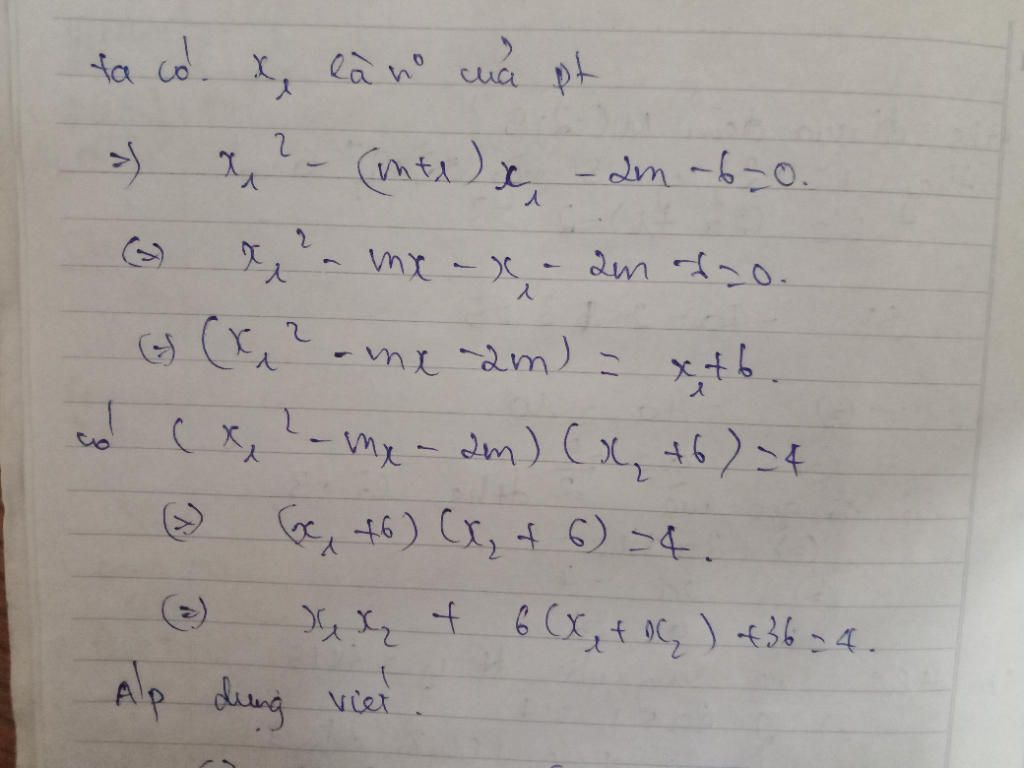 ta có. x₁ là n° của pt
=> x₁² - (m+1)x₁ - 2m - 6 = 0.
(=) x₁² - mx - x₁ - 2m - 6 = 0.
(=) (x₁² - mx - 2m) = x₁ + 6.
có (x₁² - mx - 2m)(x₂ + 6) = 4
(=) (x₁ + 6)(x₂ + 6) = 4.
(=) x₁x₂ + 6(x₁ + x₂) + 36 = 4.
Áp dụng viét.